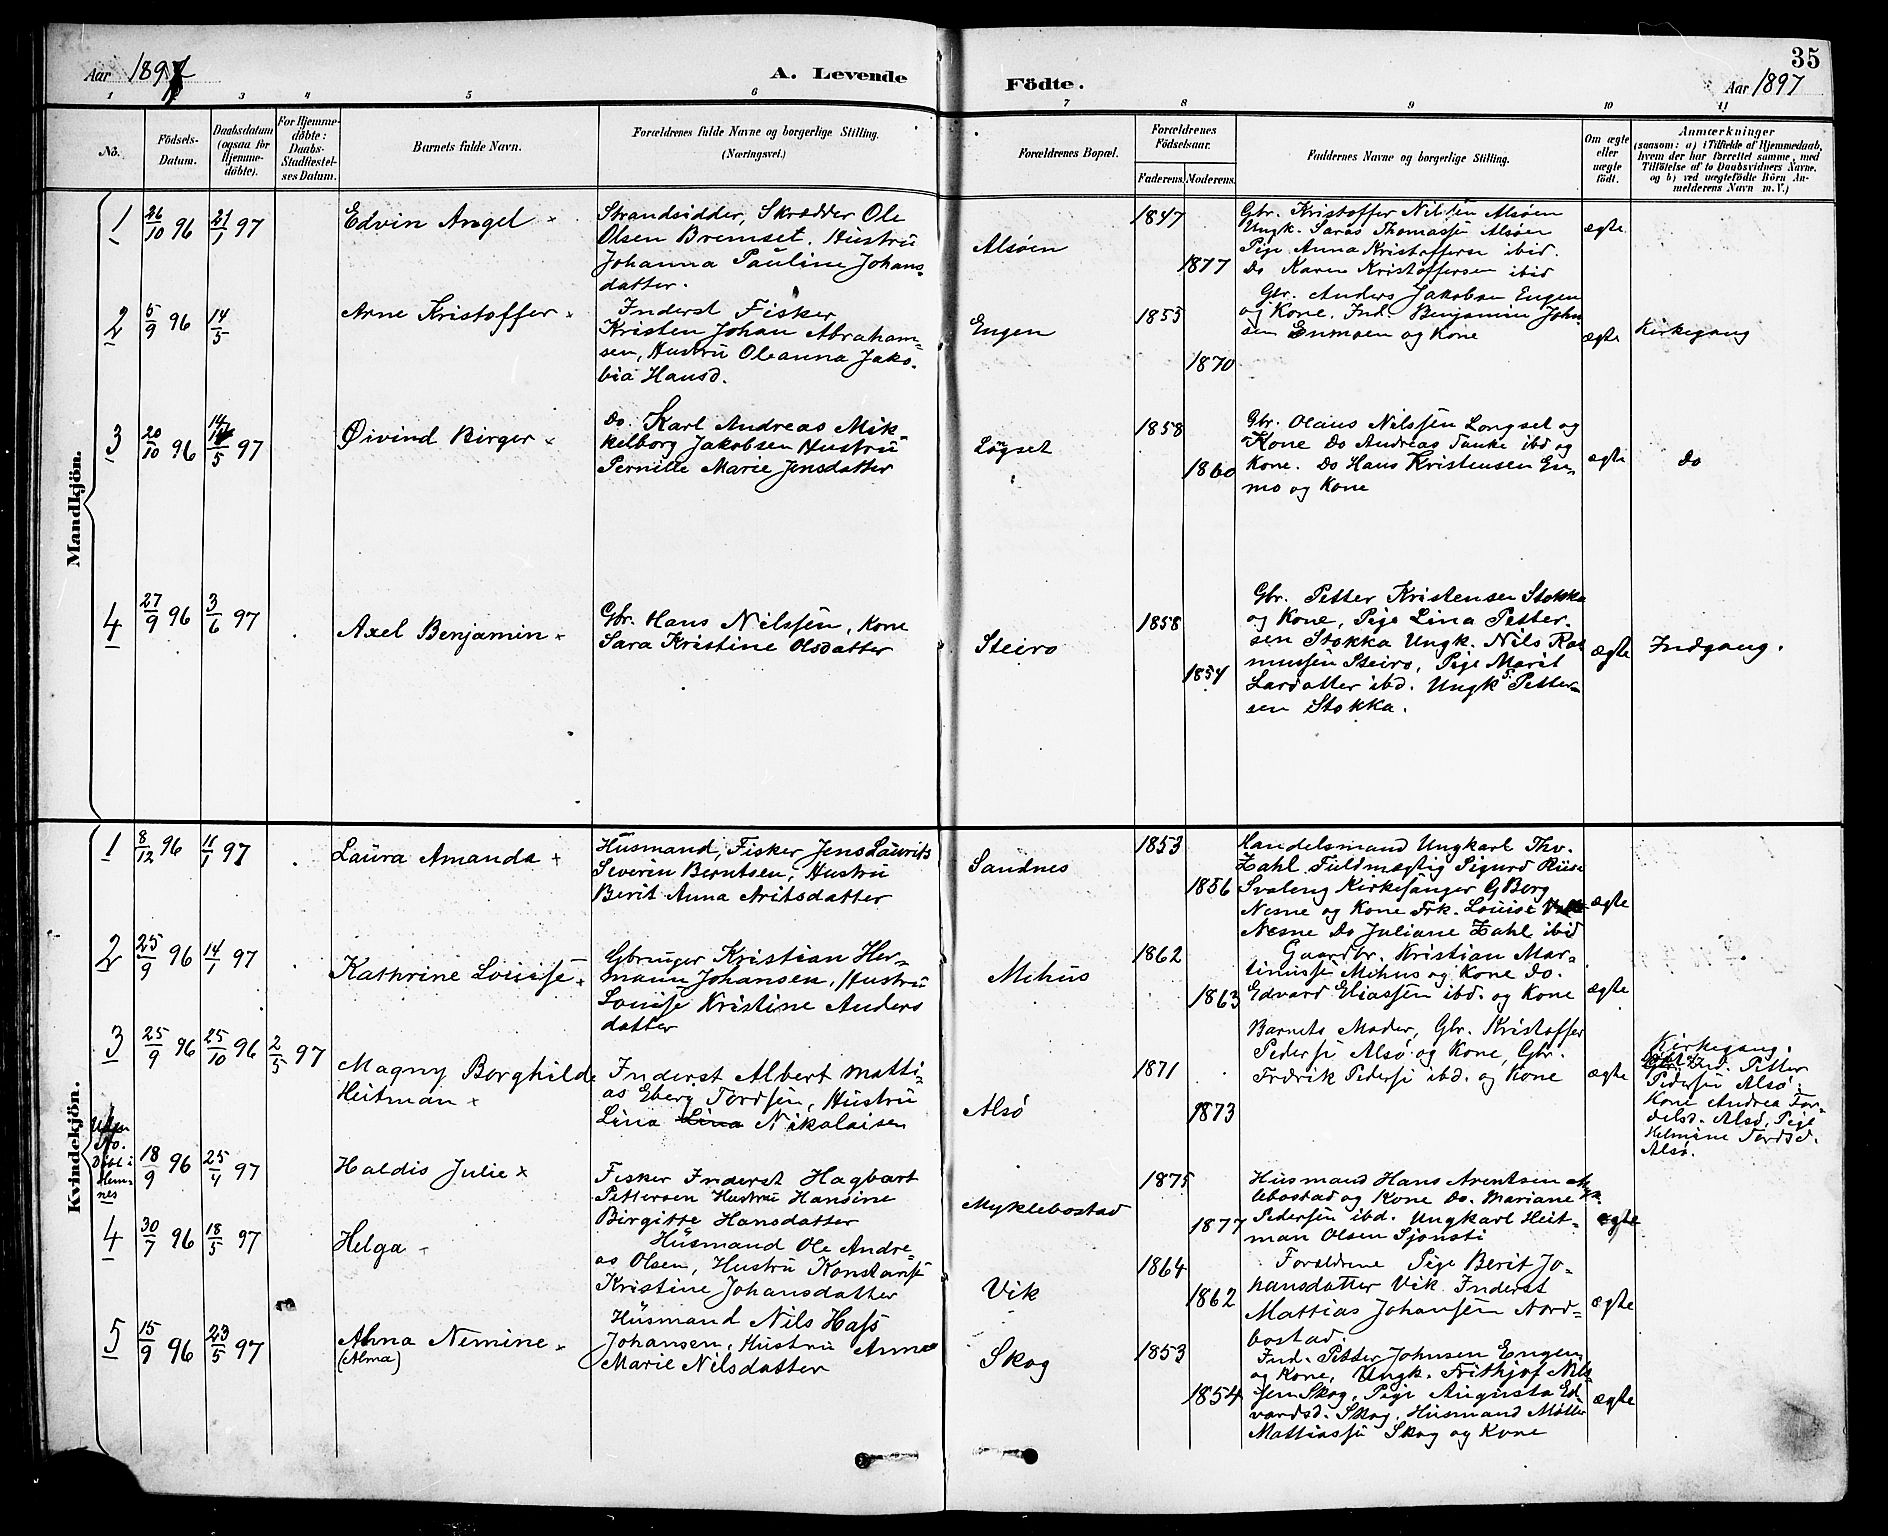 Aar 1897
A. Levende
Födte.
35
Aar 1897
1 2 3 4 5 6 7 8 9 10 11
No.
Födsels-
Datum.
Daabsdatum
(ogsaa for
Hjemme-
döbte).
For Hjemme-
döbte:
Daabs-
Stadfestel-
ses Datum.
Barnets fulde Navn.
Forældrenes fulde Navne og borgerlige Stilling.
(Næringsvei.)
Forældrenes Bopæl.
Forældrenes
Födselsaar.
Faderens. Moderens.
Faddernes Navne og borgerlige Stilling.
Om ægte
eller
uægte
födt.
Anmærkninger
(saasom: a) i Tilfælde af Hjemmedaab,
hvem der har forrettet samme, med
Tilföielse af to Daabsvidners Navne,
og b) ved uægtefödte Börn An-
melderens Navn m. V.)
Mandkjön.
1 26/10 96 21/1 97 Edvin Angel
Strandsidder, Skrædder Ole
Olsen Bremset. Hustru
Johanna Pauline Johans-
datter.
Alsøen
1847
1877
Gbr. Kristoffer Nilsen Alsøen
Ungk. Saras Thomassen Alsøen
Pige Anna Kristoffersen ibid.
Do Karen Kristoffersen ibid
ægte
2 5/9 96 14/5 Arne Kristoffer
Inderst Fisker
Kristen Johan Abraham-
sen, Hustru Oleanna Jako-
bia Hansd.
Engen
1853
1870
Gbr. Anders Jakobsen Engen
og Kone. Ind. Benjamin John-
sen Enmoen og Kone
ægte
Kirkegang
3 20/10 96 14/5 97 Øivind Birger
Do. Karl Andreas Mik-
kelborg Jakobsen Hustru
Pernille Marie Jensdatter
Løgset
1858
1860
Gbr. Olaus Nilssen Longset og
Kone Do Andreas Tanke ibd og
Kone. Do Hans Kristensen En-
mo og Kone
ægte
Do
4 27/9 96 3/6 97 Axel Benjamin
Gbr. Hans Nilssen, Kone
Sara Kristine Olsdatter
Steiro
1858
1854
Gbr. Petter Kristensen Stokka
og Kone, Pige Lina Petter-
sen Stokka Ungk. Nils Ras
mussen Steiro, Pige Marit
Larsdatter ibd. Ungk Petter-
sen Stokka.
ægte
Indgang.
Kvindekjön.
1 8/12 96 11/1 97 Laura Amanda
Husmand, Fisker Jens Laurits
Severin Berntsen, Hustru
Berit Anna Aritsdatter
Sandnes
1853
1856
Handelsmand Ungkarl Thv.
Zahl Fuldmægtig Sigurd Riise
Svaleng Kirkesanger G Berg
Nesne og Kone Frk. Louise
Nesne Do Juliane Zahl ibid
ægte
2 25/9 96 14/1 97 Kathrine Louise
Gbruger Kristian Her-
mann Johansen, Hustru
Louise Kristine Anders
datter
Mehus
1862
1863
Gaardbr. Kristian Mar-
tinussen Mehus og Kone Do.
Edvard Eliassen ibd. og Kone
ægte
3 25/9 96 25/10 96 2/5 97 Magny Borghild
Heitman
Inderst Albert Matti-
as Eberg Tordsen, Hustru
Lina Lina Nikolaisen
Alsø
1871
1873
Barnets Moder, Gbr. Kristoffer
Pedersen Alsø og Kone, Gbr.
Fredrik Pedersen ibd. og Kone
ægte
Kirkegang.
Ind. Petter
Pedersen Alsø.
Kone Andrea For-
delsd. Alsø, Pige
Helmine Tordsd.
Alsø.
Uden
No.
Døbt i
Hem-
nes
18/9 96 25/4 97 Haldis Julie
Fisker Inderst Hagbart
Pettersen Hustru Hansine
Birgitte Hansdatter
Myklebostad
1875
1877
Husmand Hans Arentsen Myk-
lebostad og Kone Do. Mariane
Pedersen ibd. Ungkarl Heit-
man Olsen Sjonsti
ægte
4 30/7 96 18/5 97 Helga
Husmand Ole Andre-
as Olsen, Hustru Konstanse
Kristine Johansdatter
Vik
1864
1862
Foreldrene Pige Berit Jo-
hansdatter Vik. Inderst
Mattias Johansen Nord-
bostad.
ægte
5 15/9 96 23/5 97 Alma Nemine
(Alma)
Husmand Nils Hass
Johansen, Hustru Anna
Marie Nilsdatter
Skog
1853
1854
Ind. Petter Johnsen Engen
og Kone, Ungk. Frithjof Nils-
sen Skog, Pige Augusta Ed-
vardsd. Skog. Husmand Møller
Mattiassen Skog og Kone
ægte